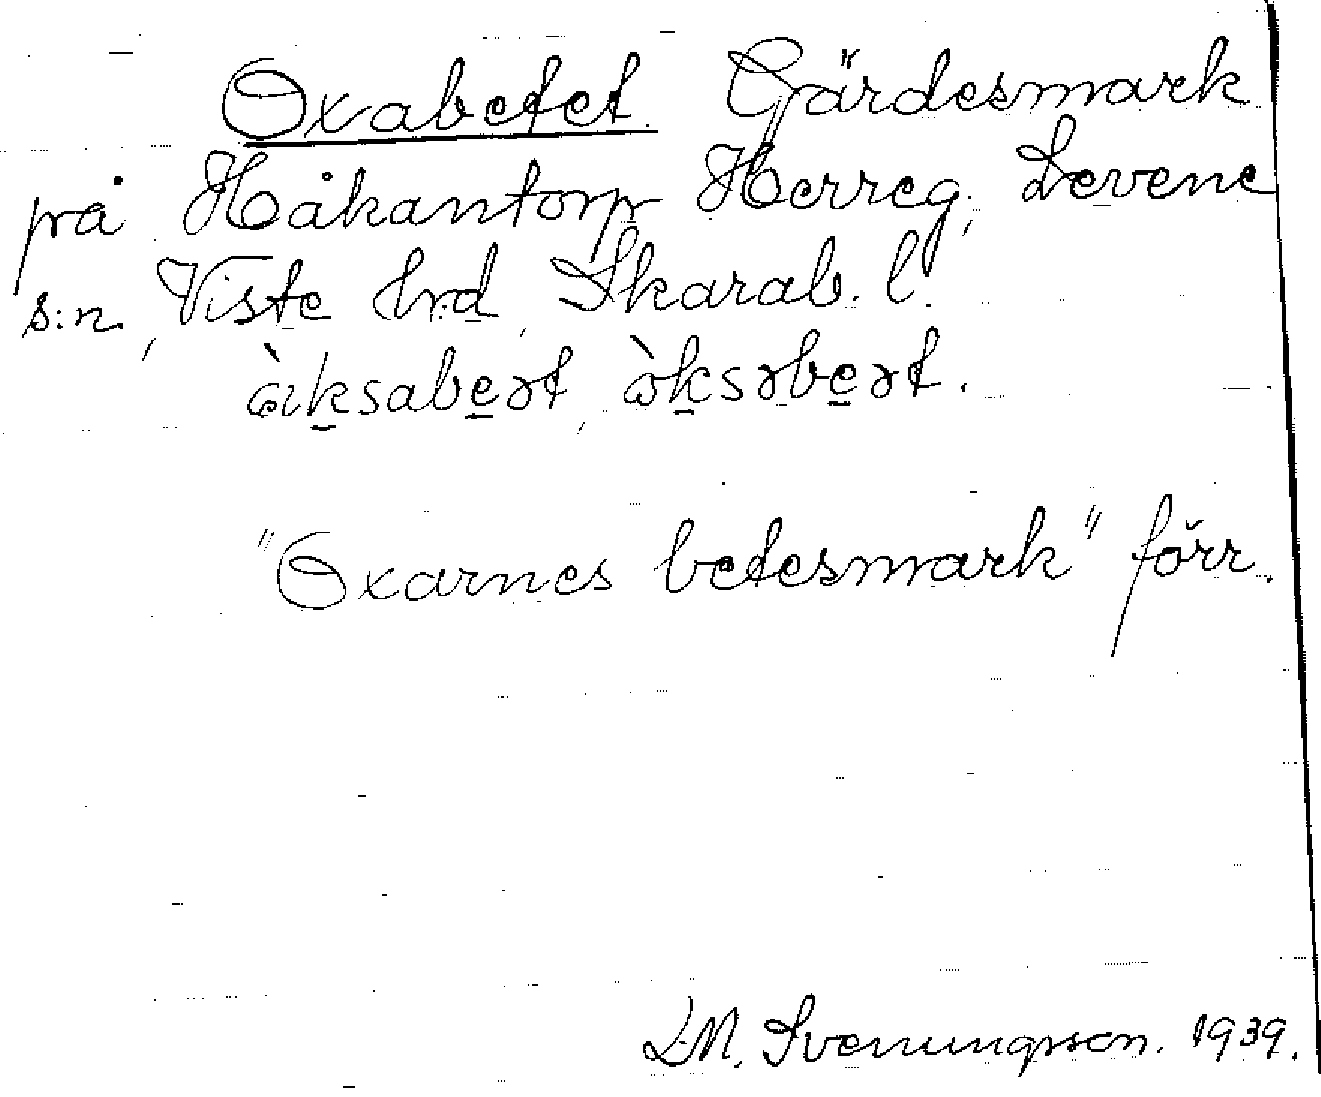 Oxabetet. Gärdesmark
på Håkantorp Herreg., Levene
s:n, Viste hrd, Skarab. l.
"Oxarnes betesmark" förr.
LM. Svenungsson. 1939.